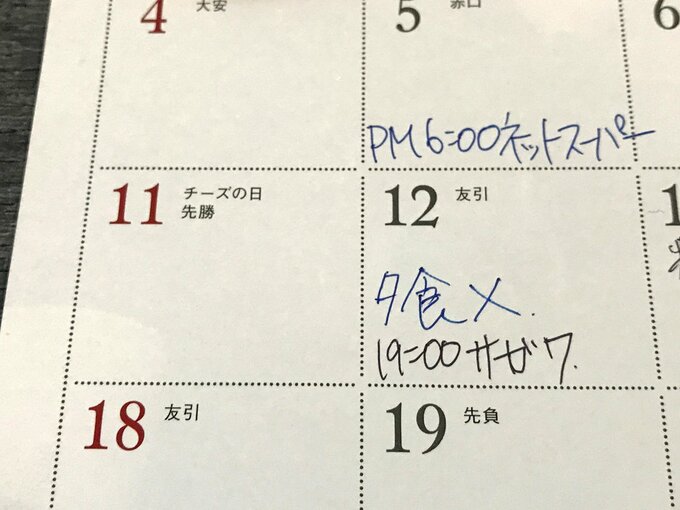 4 大安
5 赤口
6
PM6:00 ネットスーパー
11 チーズの日
先勝
12 友引
夕食×.
19:00 サザワ.
18 友引
19 先負